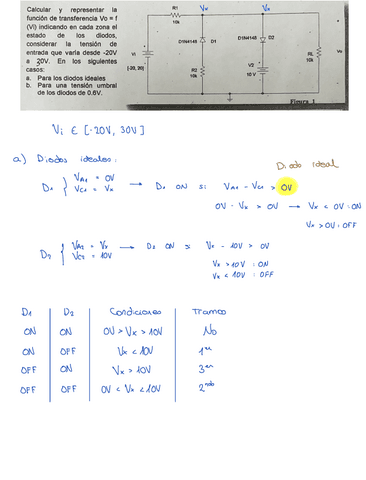 Calcular y representar la
función de transferencia Vo = f
(Vi) indicando en cada zona el
estado de los diodos,
considerar la tensión de
entrada que varía desde -20V
a 20V. En los siguientes
casos:
a. Para los diodos ideales
b. Para una tensión umbral
de los diodos de 0.6V.
R1
10k
Vx
Vo
D1N4148
D1
D1N4148
D2
Vi
[-20, 20]
R2
10k
V2
10 V
RL
10k
Vo
Figura 1
Vi ∈ [-20V, 30V]
a) Diodos ideales:
Diodo ideal
D1 { VA1 = 0V
VC1 = Vx → D1 ON si VA1 - VC1 > 0V
0V - Vx > 0V → Vx < 0V: ON
Vx > 0V: OFF
D2 { VA2 = Vx
VC2 = 10V → D2 ON si Vx - 10V > 0V
Vx > 10V : ON
Vx < 10V : OFF
D1 D2 Condiciones Tramos
ON ON 0V > Vx > 10V No
ON OFF Vx < 10V 1er
OFF ON Vx > 10V 3er
OFF OFF 0V < Vx < 10V 2ndo